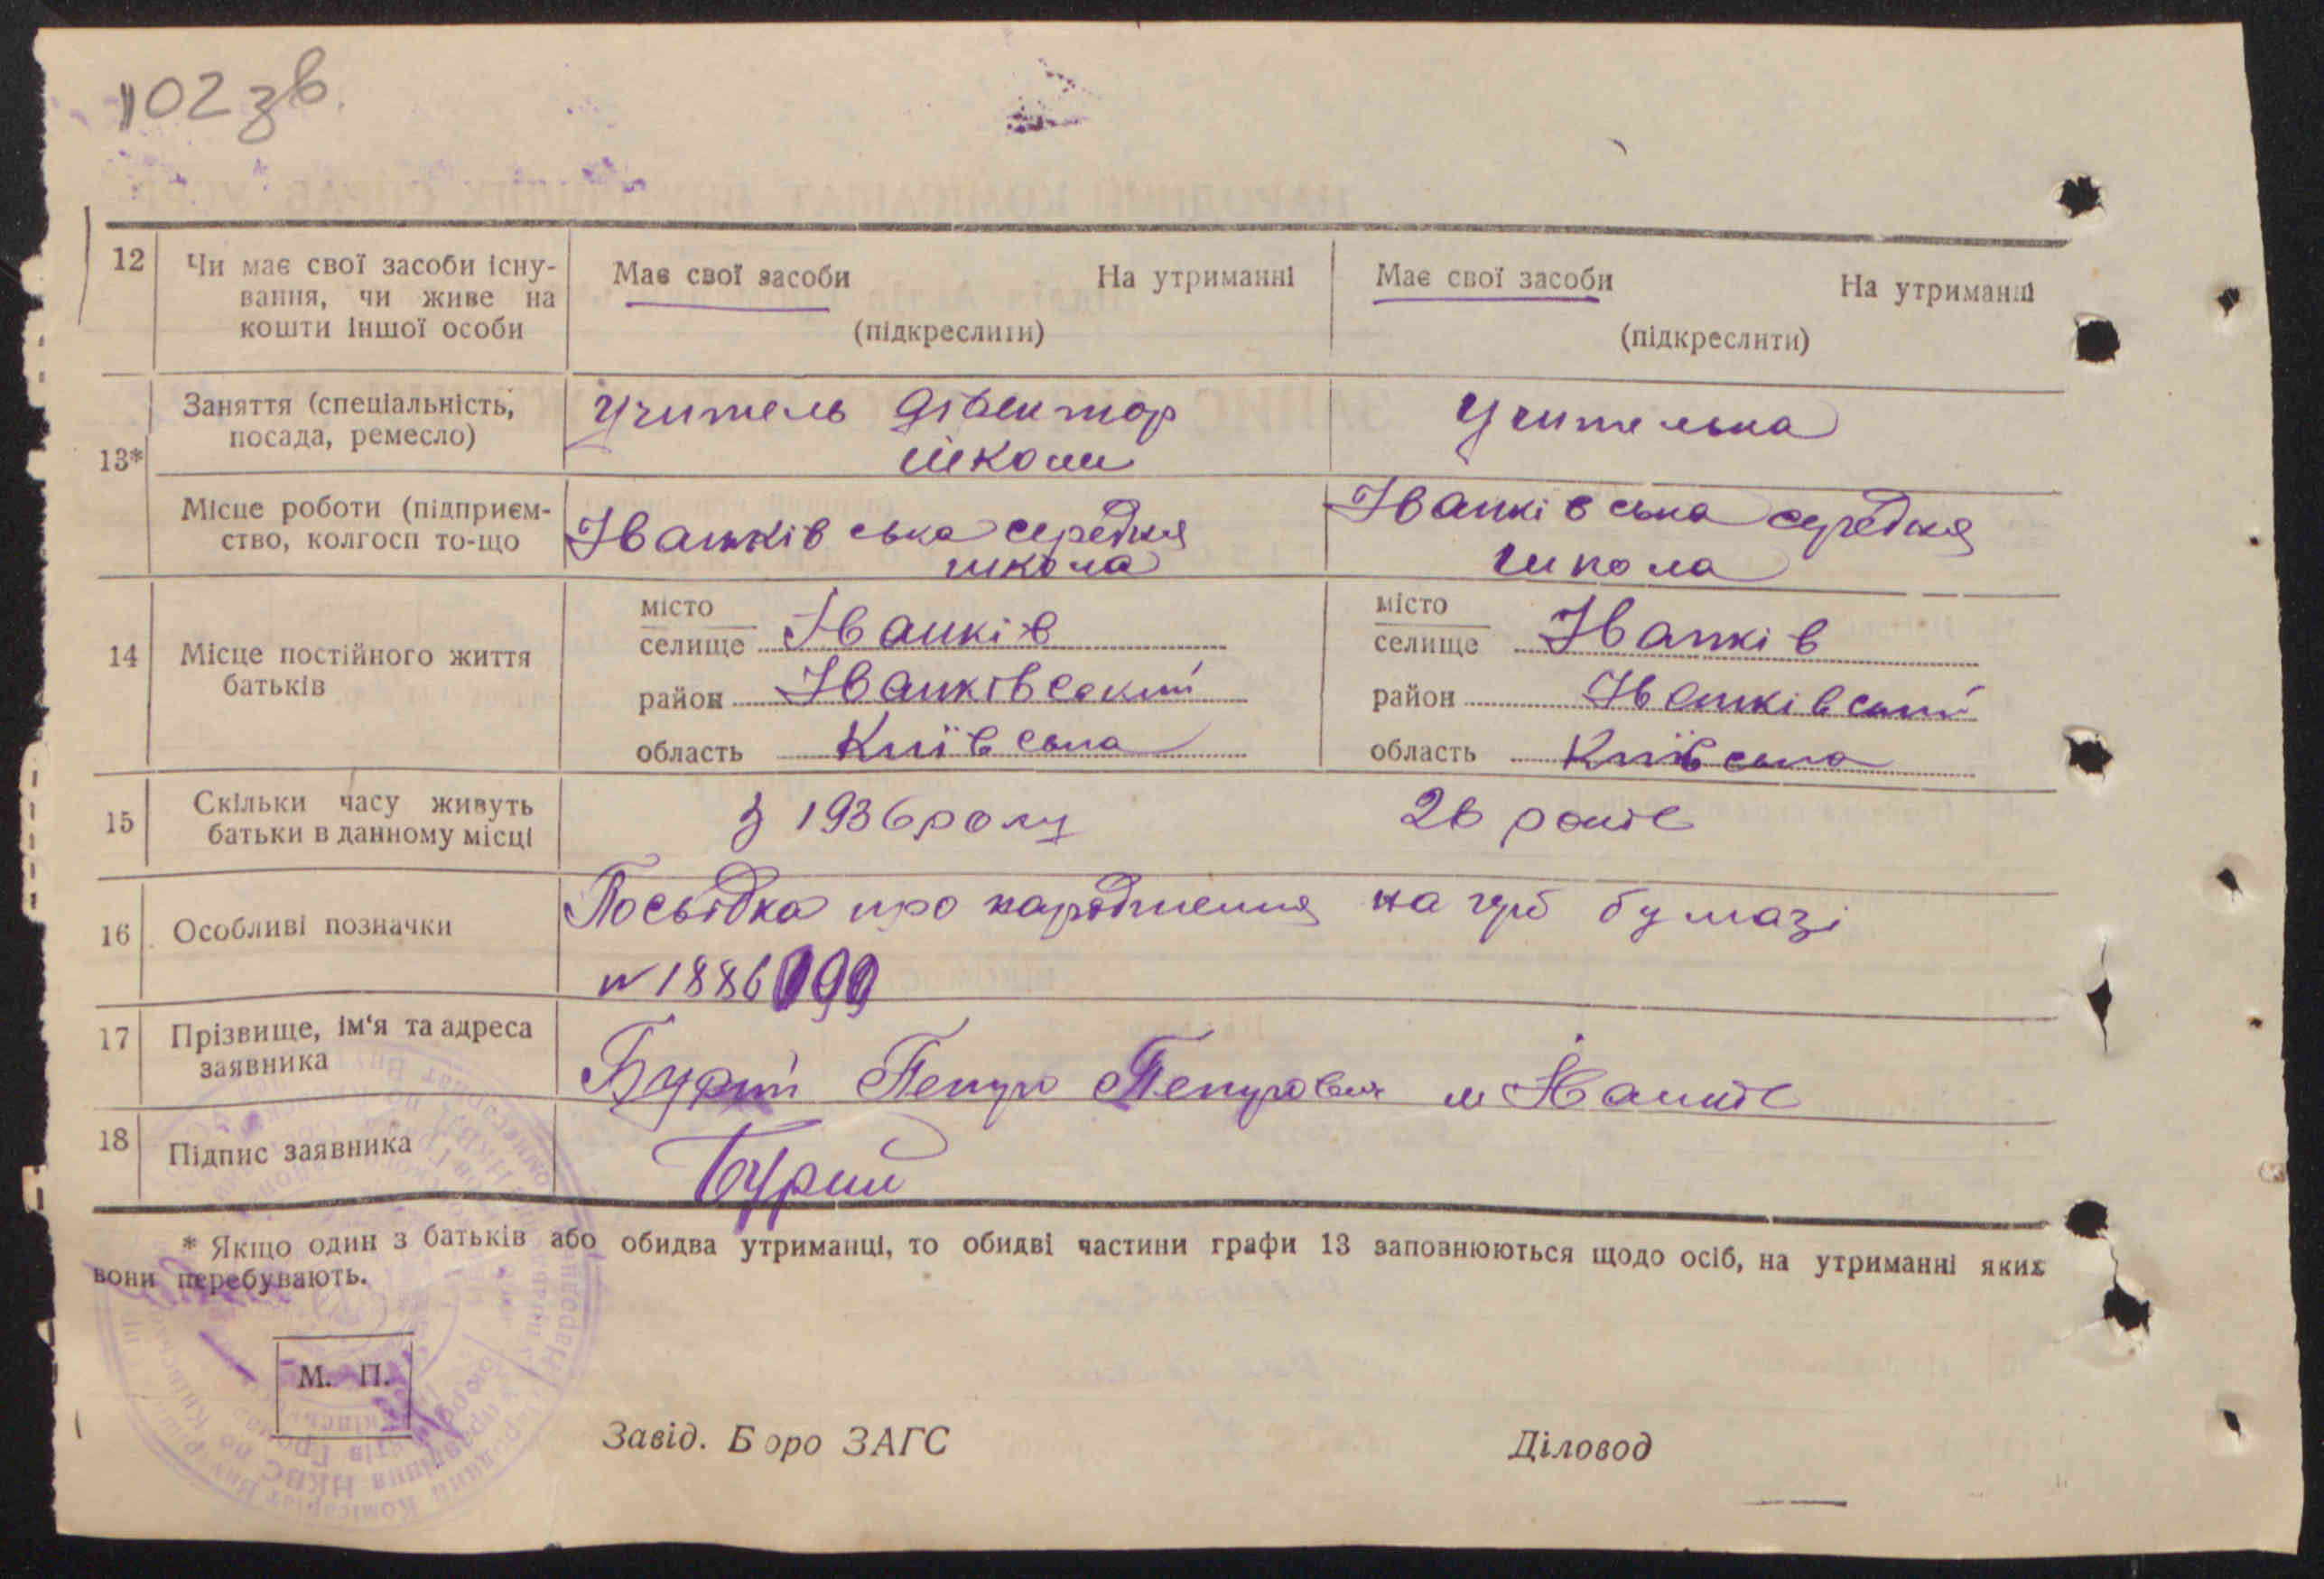 102 зв.
12 Чи має свої засоби існу-
вання, чи живе на
кошти іншої особи
Має свої засоби На утриманні
(підкреслити)
Має свої засоби На утриманні
(підкреслити)
13*
Заняття (спеціальність,
посада, ремесло)
Учитель Директор
школи
Учителька
Місце роботи (підприєм-
ство, колгосп то-що
Іванківська середня
школа
Іванківська середня
школа
14 Місце постійного життя
батьків
місто
селище Іванків
район Іванківський
область Київська
місто
селище Іванків
район Іванківський
область Київська
15 Скільки часу живуть
батьки в данному місці
З 1936 року
26 років
16 Особливі позначки
Посвідка про народження на герб бумазі
№ 1886099
17 Прізвище, ім‘я та адреса
заявника
Бурий Петро Петрович м Іванків
18 Підпис заявника
Бурий
* Якщо один з батьків або обидва утриманці, то обидві частини графи 13 заповнюються щодо осіб, на утриманні яких
вони перебувають.
М. П.
Завід. Бюро ЗАГС Діловод